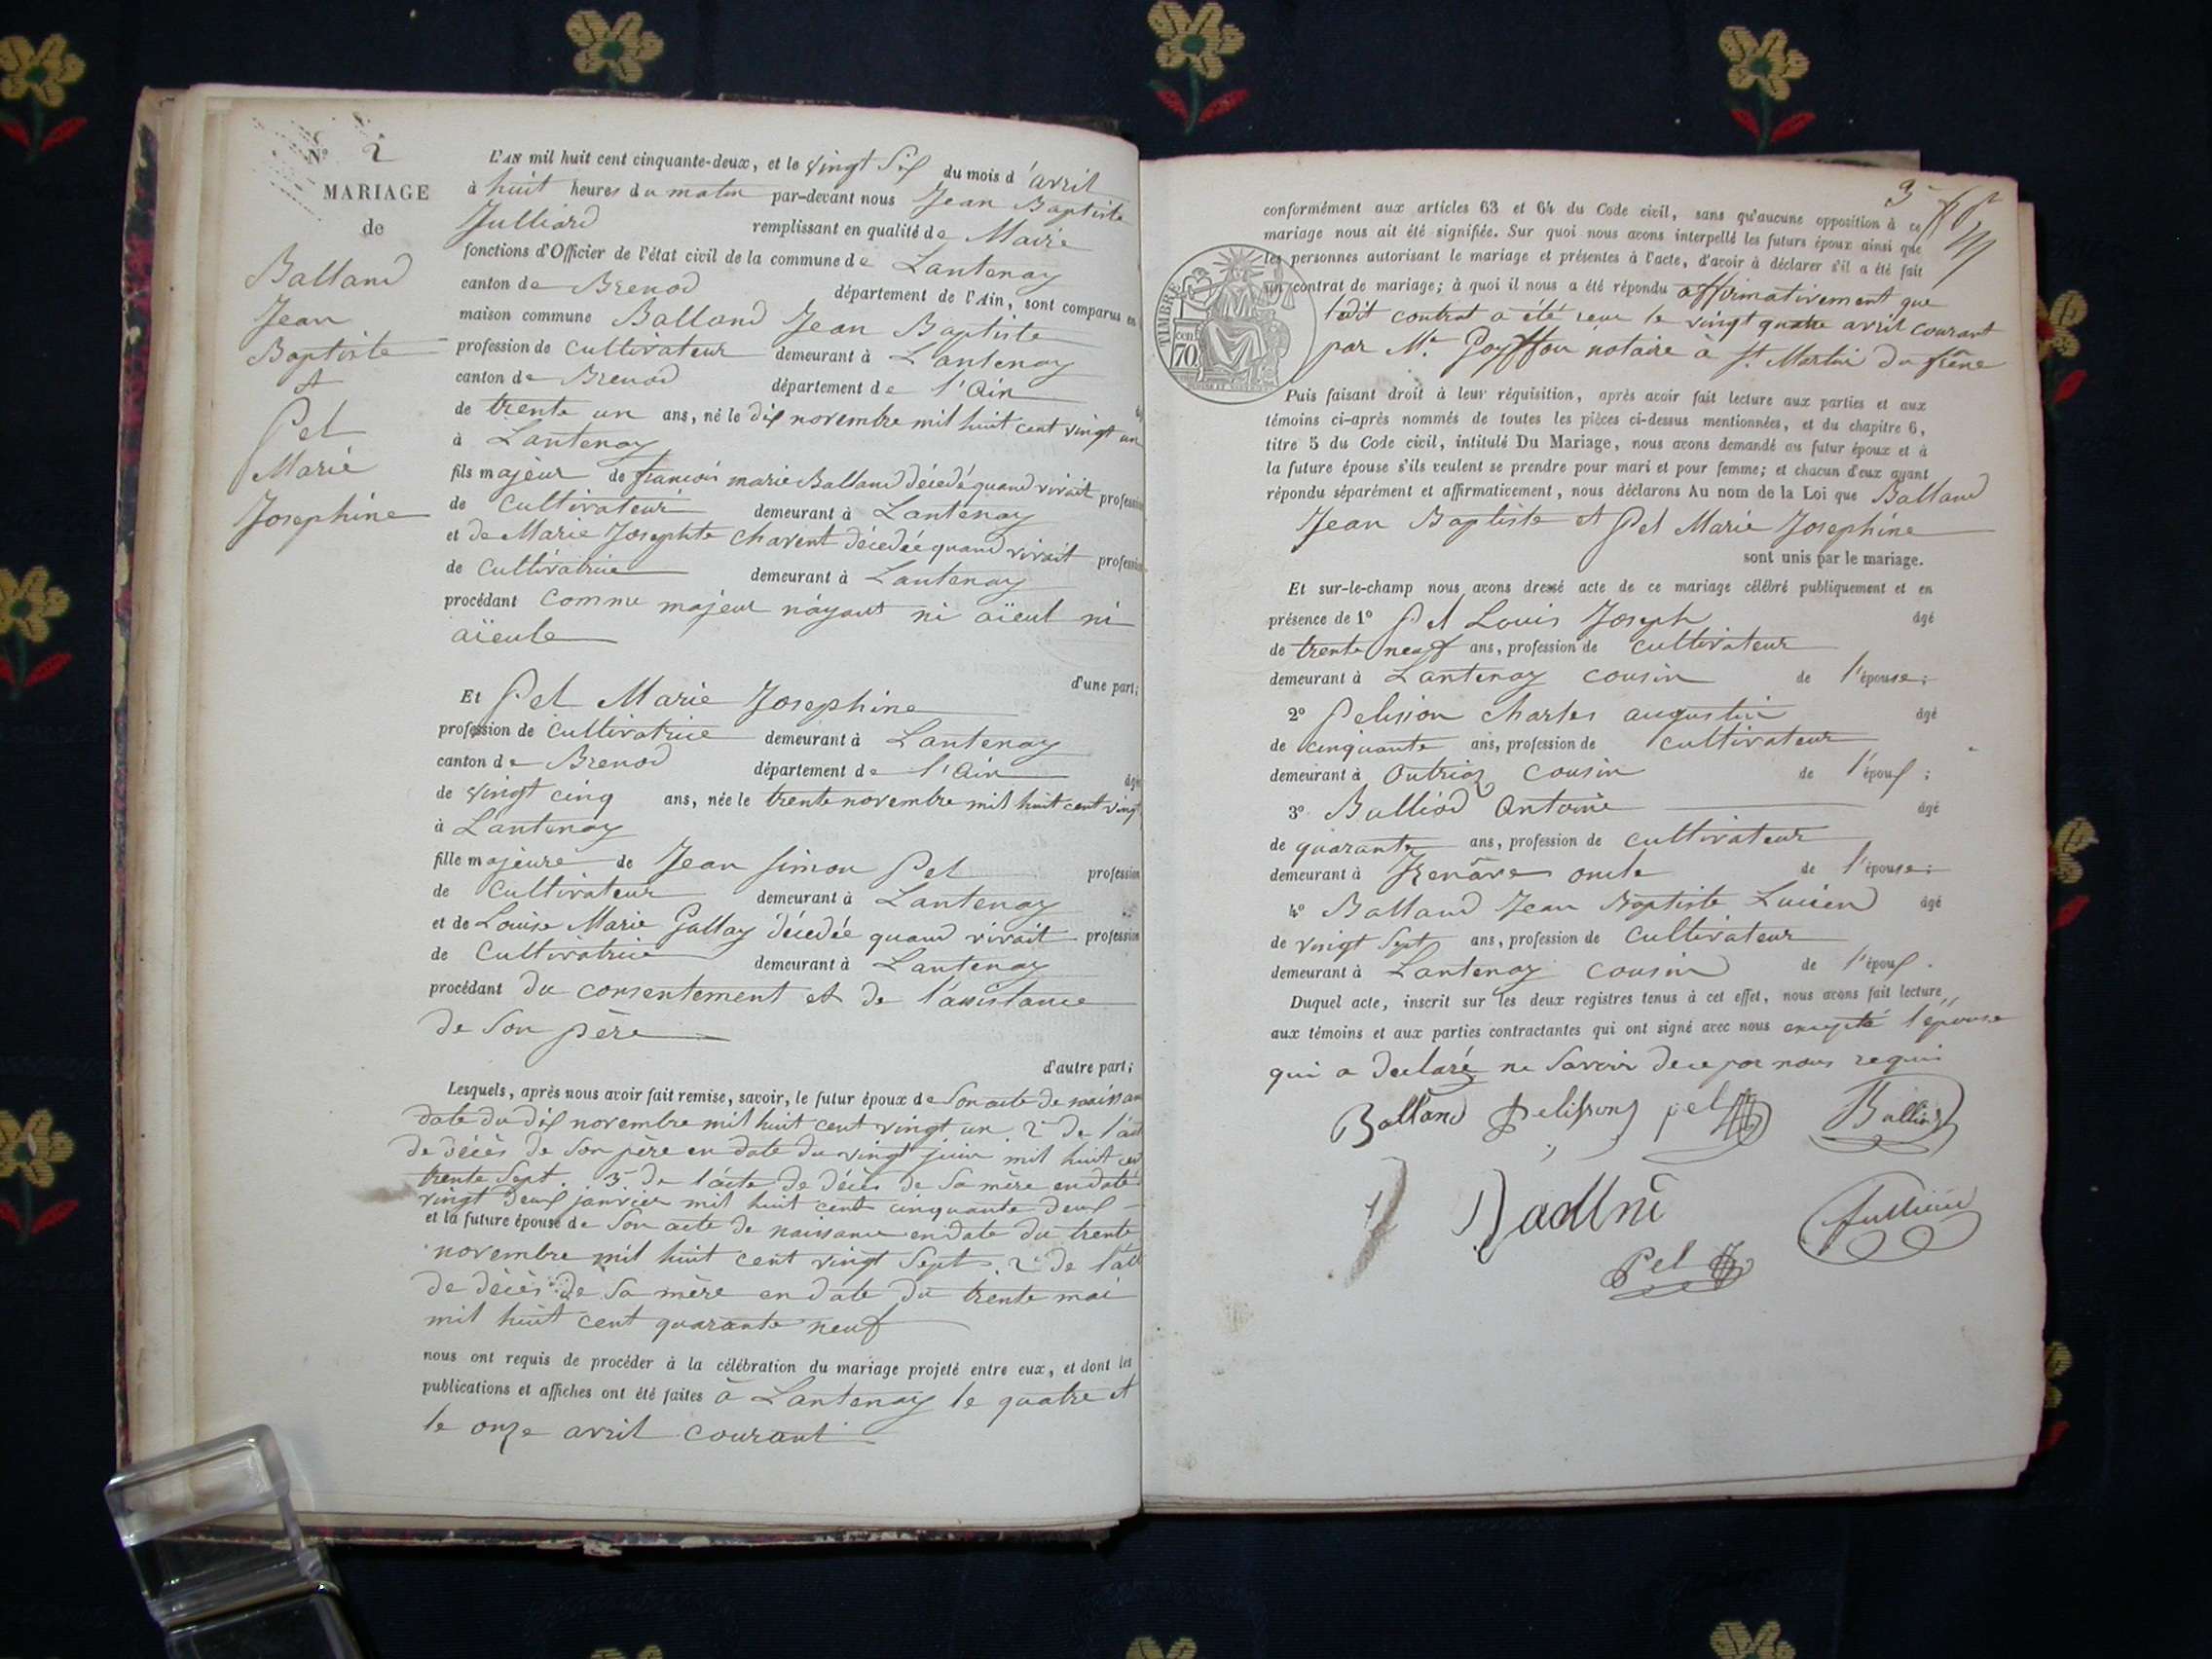 N° 2
MARIAGE
de
Balland
Jean
Baptiste
et
Pel
Marie
Josephine
L'AN mil huit cent cinquante-deux, et le vingt Six du mois d'avril
à huit heures du matin par-devant nous Jean Baptiste
Julliard remplissant en qualité de Maire
fonctions d'Officier de l'état civil de la commune de Lantenay
canton de Brenod département de l'Ain, sont comparus en
maison commune Balland Jean Baptiste
profession de cultivateur demeurant à Lantenay
canton de Brenod département de l'Ain
de trente un ans, né le dix novembre mil huit cent vingt un
à Lantenay
fils majeur de francois marie Balland décedé quand vivait profession
de cultivateur demeurant à Lantenay
et de Marie Josephte Charent décedée quand vivait profession
de cultivatrice demeurant à Lantenay
procédant comme majeur n'ayant ni aïeul ni
aïeule
d'une part;
Et Pel Marie Josephine
profession de cultivatrice demeurant à Lantenay
canton de Brenod département de l'Ain âgée
de vingt cinq ans, née le trente novembre mil huit cent vingt
à Lantenay
fille majeure de Jean Simon Pel profession
de cultivateur demeurant à Lantenay
et de Louise Marie Gallay décedée quand vivait profession
de Cultivatrice demeurant à Lantenay
procédant du consentement et de l'assistance
de Son père
d'autre part;
Lesquels, après nous avoir fait remise, savoir, le futur époux de Son acte de naissan
date du dix novembre mil huit cent vingt un. 2° de l'act
de décès de Son père en date du vingt juin mil huit cent
trente Sept. 3° de l'acte de décès de Sa mère en date
vingt deux janvier mil huit cent cinquante deux
et la future épouse de Son acte de naissance en date du trente
novembre mil huit cent vingt Sept. 2° de l'act
de décès de Sa mère en date du trente mai
mil huit cent quarante neuf
nous ont requis de procéder à la célébration du mariage projeté entre eux, et dont les
publications et affiches ont été faites à Lantenay le quatre et
le onze avril courant
3
conformément aux articles 63 et 64 du Code civil, sans qu'aucune opposition à ce
mariage nous ait été signifiée. Sur quoi nous avons interpellé les futurs époux ainsi que
les personnes autorisant le mariage et présentes à l'acte, d'avoir à déclarer s'il a été fait
un contrat de mariage; à quoi il nous a été répondu affirmativement que
ledit contrat a été reçu le vingt quatre avril courant
par Me. Goyffon notaire à St. Martin du frêne
TIMBRE
70 cen
Puis faisant droit à leur réquisition, après avoir fait lecture aux parties et aux
témoins ci-après nommés de toutes les pièces ci-dessus mentionnées, et du chapitre 6,
titre 5 du Code civil, intitulé Du Mariage, nous avons demandé au futur époux et à
la future épouse s'ils veulent se prendre pour mari et pour femme; et chacun d'eux ayant
répondu séparément et affirmativement, nous déclarons Au nom de la Loi que Balland
Jean Baptiste et Pel Marie Josephine
sont unis par le mariage.
Et sur-le-champ nous avons dressé acte de ce mariage célébré publiquement et en
présence de 1° Pel Louis Joseph âgé
de trente neuf ans, profession de cultivateur
demeurant à Lantenay cousin de l'épouse;
2° Pelisson Charles augustin âgé
de cinquante ans, profession de cultivateur
demeurant à Outriaz cousin de l'époux;
3° Bulliod Antoine âgé
de quarante ans, profession de cultivateur
demeurant à oncle de l'épouse;
4° Balland Jean Baptiste Lucien âgé
de vingt Sept ans, profession de Cultivateur
demeurant à Lantenay cousin de l'époux.
Duquel acte, inscrit sur les deux registres tenus à cet effet, nous avons fait lecture
aux témoins et aux parties contractantes qui ont signé avec nous excepté l'épouse
qui a declaré ne Savoir de ce par nous requis
Balland Pelisson pel Bulliod
Julliard
Pel